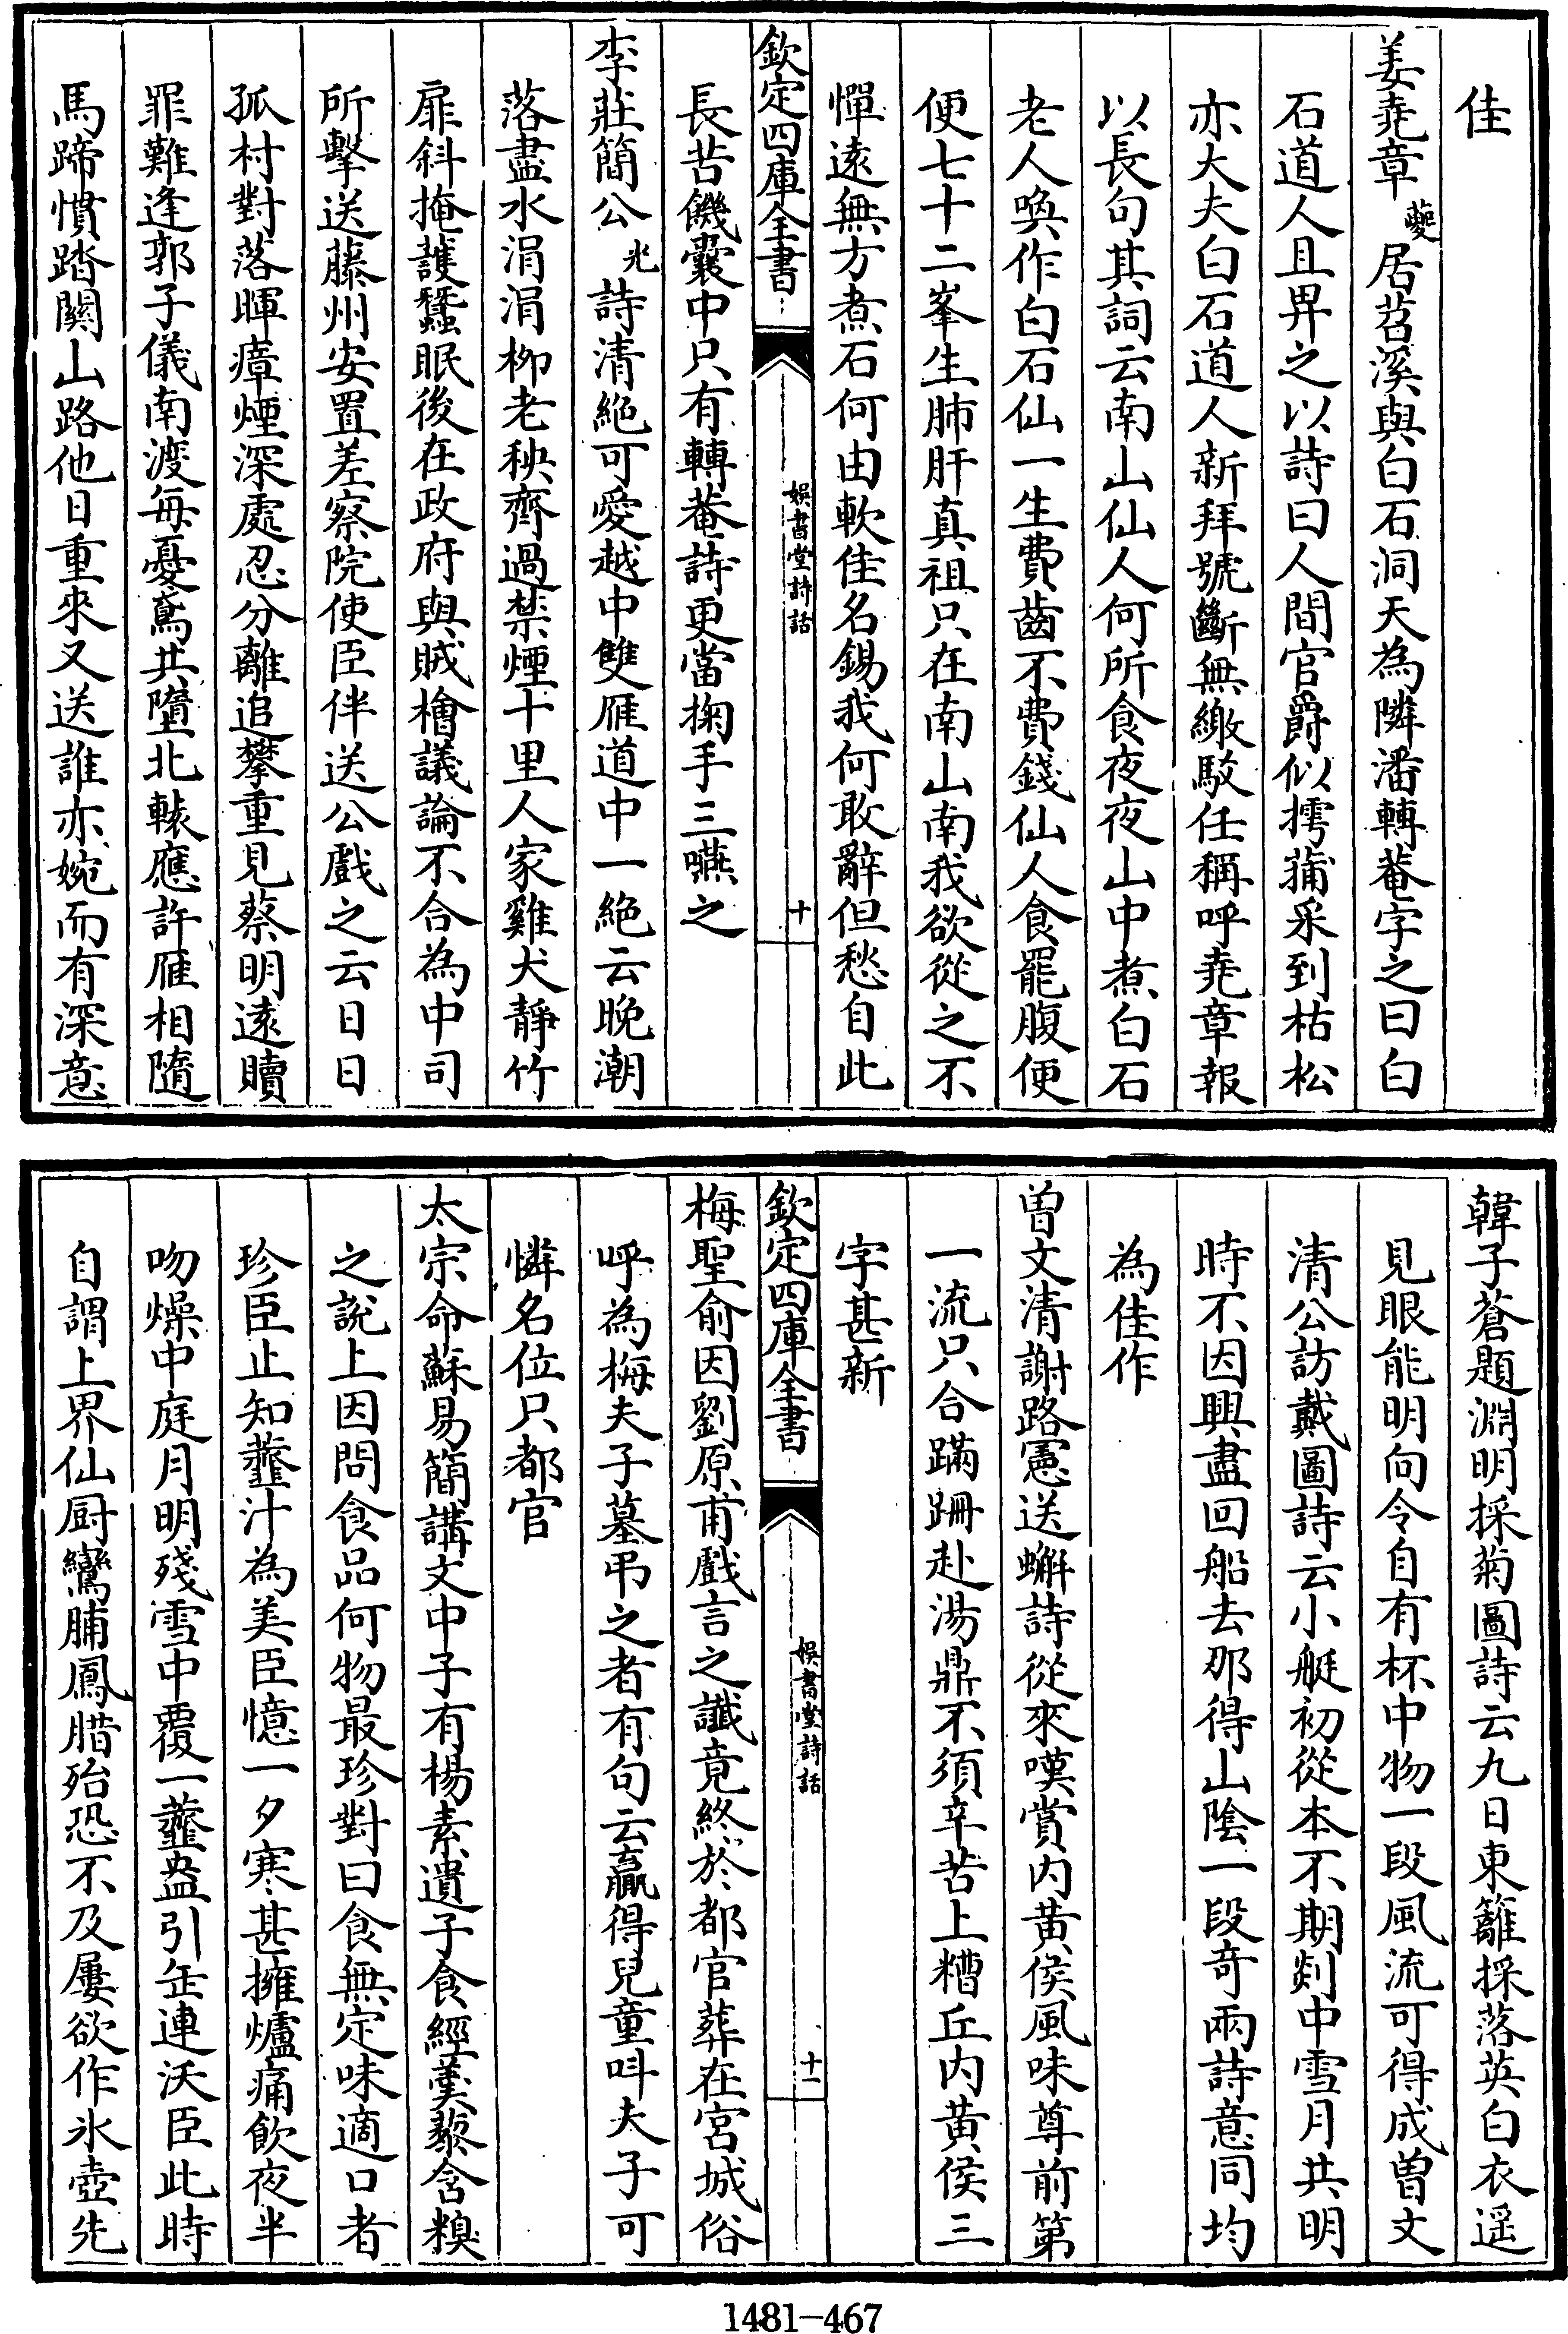 佳
姜堯章夔居苕溪與白石洞天為隣潘轉菴字之曰白
石道人且畀之以詩曰人間官爵似摴蒱采到枯松
亦大夫白石道人新拜號斷無繳駮任稱呼堯章報
以長句其詞云南山仙人何所食夜夜山中煮白石
老人喚作白石仙一生費齒不費錢仙人食罷腹便
便七十二峯生肺肝真祖只在南山南我欲從之不
憚遠無方煮石何由軟佳名錫我何敢辭但愁自此
欽定四庫全書
娯書堂詩話
十
長苦饑囊中只有轉菴詩更當掬手三嚥之
李莊簡公光詩清絶可愛越中雙雁道中一絶云晚潮
落盡水涓涓柳老秧齊過禁煙十里人家雞犬靜竹
扉斜掩護蠶眠後在政府與賊檜議論不合為中司
所擊送藤州安置差察院使臣伴送公戲之云日日
孤村對落暉瘴煙深處忍分離追攀重見蔡明遠贖
罪難逢郭子儀南渡每憂鳶共墮北轅應許雁相隨
馬蹄慣踏關山路他日重來又送誰亦婉而有深意
韓子蒼題淵明採菊圖詩云九日東籬採落英白衣遥
見眼能明向令自有杯中物一段風流可得成曽文
清公訪戴圖詩云小艇初從本不期剡中雪月共明
時不因興盡回船去那得山隂一段奇兩詩意同均
為佳作
曽文清謝路憲送蠏詩從來嘆賞内黄侯風味尊前第
一流只合蹣跚赴湯鼎不須辛苦上糟丘内黄侯三
字甚新
欽定四庫全書
娯書堂詩話
十一
梅聖俞因劉原甫戲言之讖竟終於都官葬在宮城俗
呼為梅夫子墓弔之者有句云贏得兒童呌夫子可
憐名位只都官
太宗命蘇易簡講文中子有楊素遺子食經羮藜含糗
之說上因問食品何物最珍對曰食無定味適口者
珍臣止知虀汁為美臣憶一夕寒甚擁爐痛飲夜半
吻燥中庭月明殘雪中覆一虀盎引缶連沃臣此時
自謂上界仙厨鸞脯鳳腊殆恐不及屢欲作氷壺先
1481-467